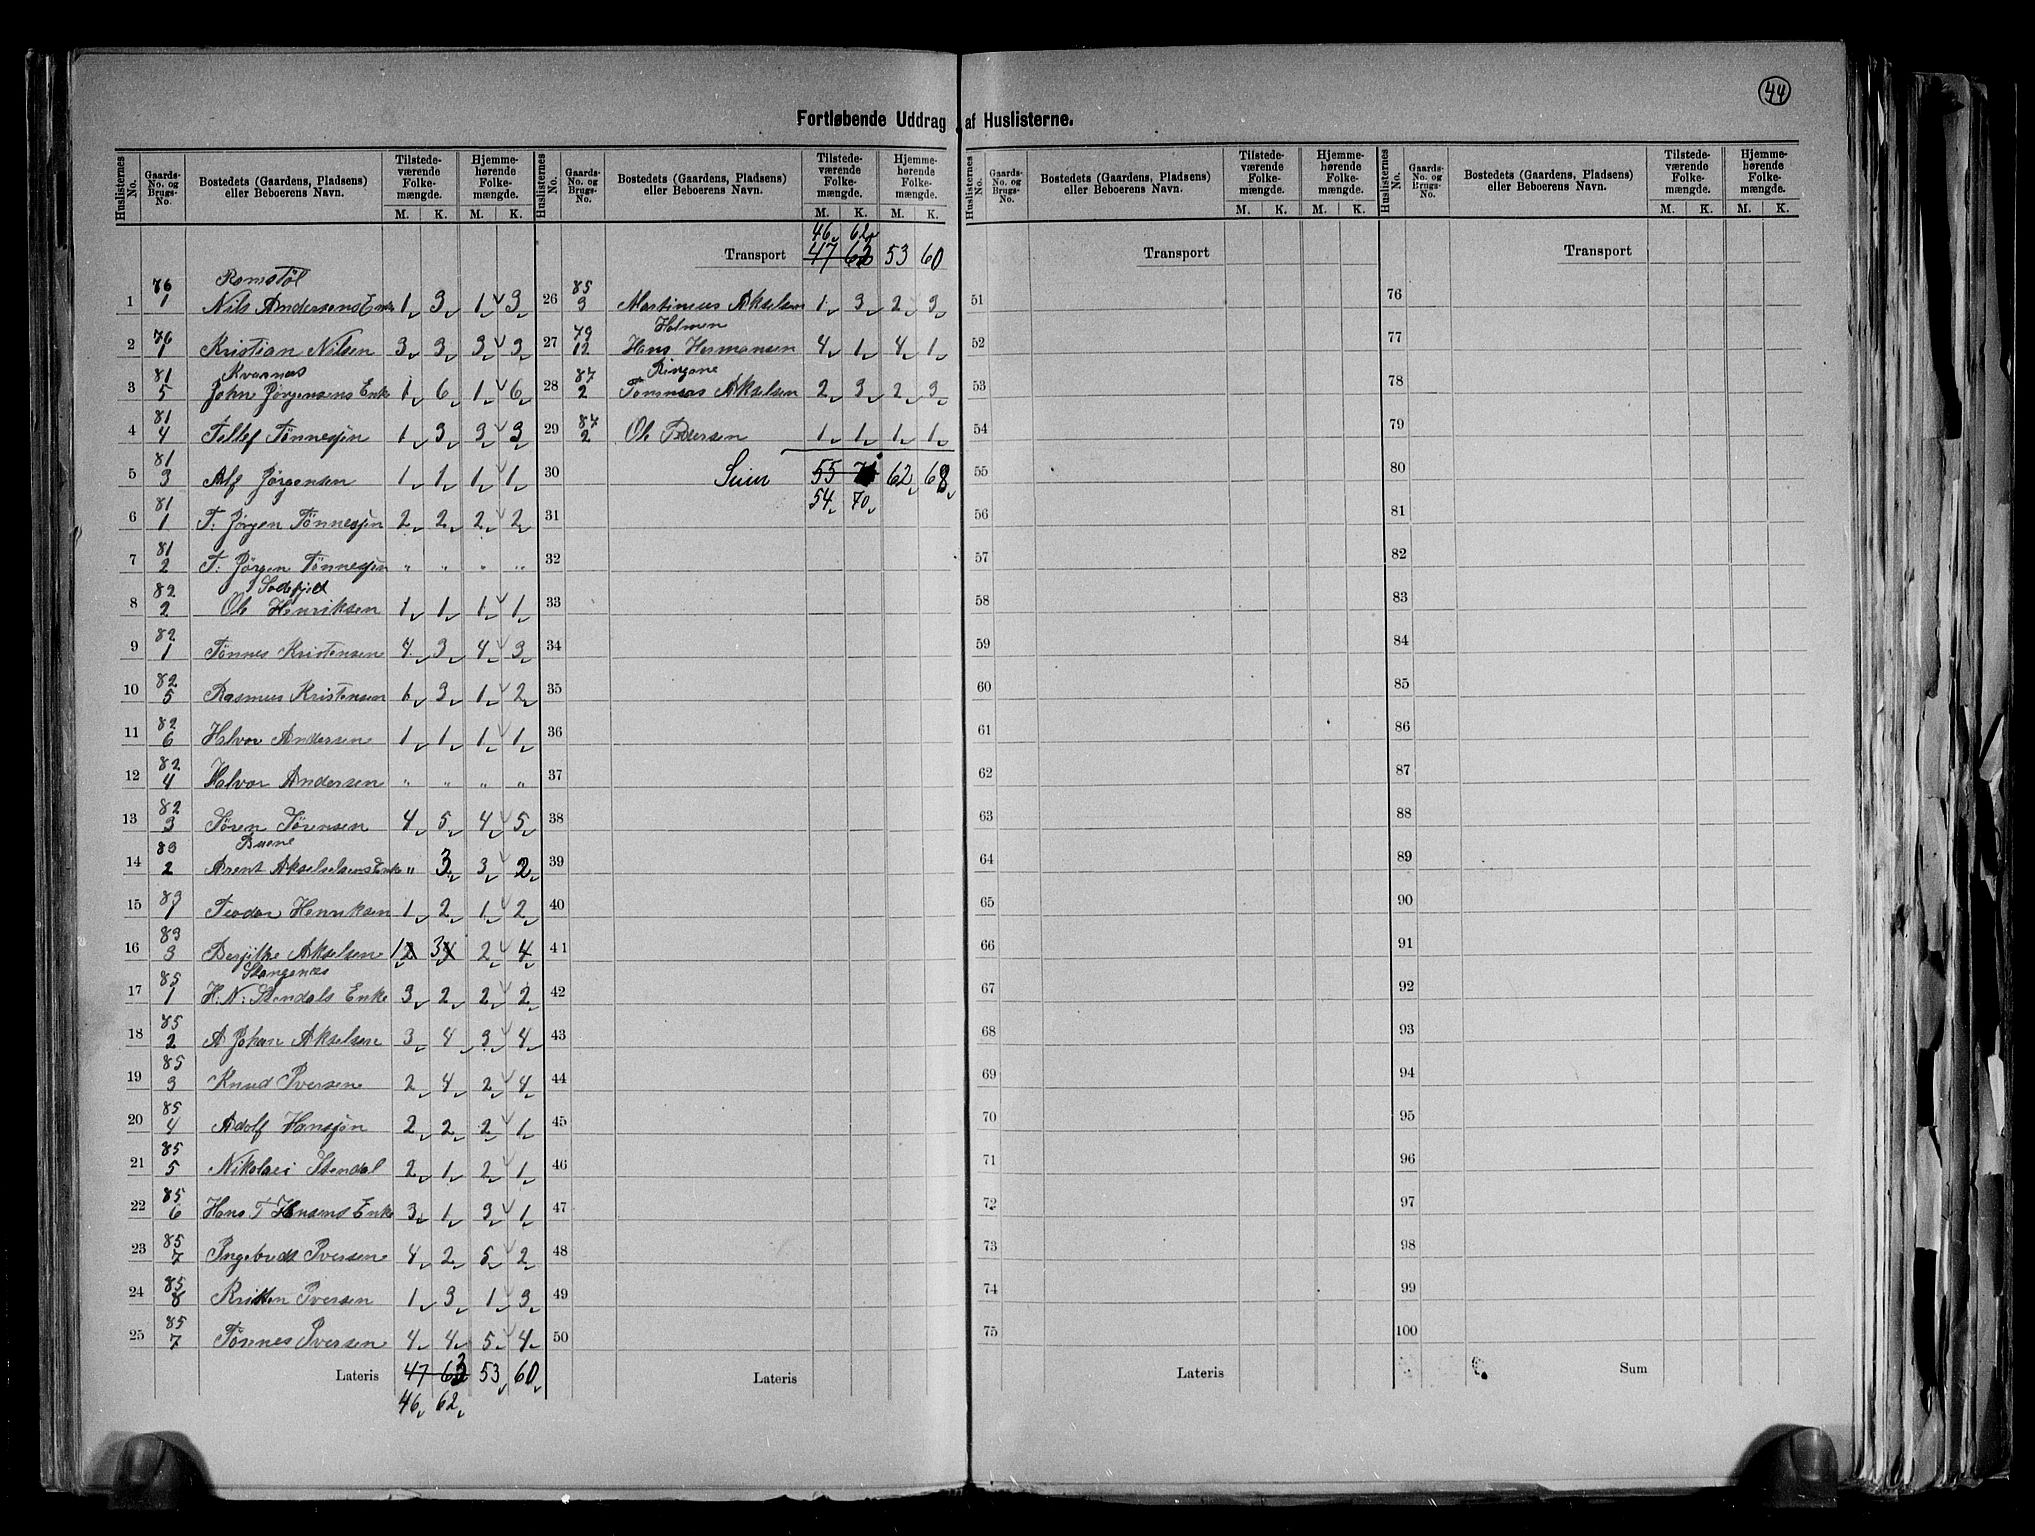 44
Fortløbende Uddrag af Huslisterne.
Huslisternes No. Gaards-No. og Brugs-No. Bostedets (Gaardens, Pladsens) eller Beboerens Navn. Tilstedeværende Folkemængde. M. K. Hjemmehørende Folkemængde. M. K.
Romstöl
1 76/1 Nils Andersens Enke 1 3 1 3
2 76/1 Kristian Nilsen 3 3 3 3
Kvarnæs
3 81/5 John Jörgensens Enke 1 6 1 6
4 81/4 Tellef Tönnesjen 1 3 3 3
5 81/3 Alf Jörgensen 1 1 1 1
6 81/1 T. Jörgen Tönnesjen 2 2 2 2
7 81/2 T. Jörgen Tönnesjen " " " "
8 82/2 Ole Henriksen 1 1 1 1
9 82/1 Tönnes Kristensen 4 3 4 3
10 82/5 Rasmus Kristensen 1 3 1 2
11 82/6 Halvor Andersen 1 1 1 1
12 82/4 Halvor Andersen " " " "
13 82/3 Sören Sörensen 4 5 4 5
Buene
14 83/2 Arent Akselsens Enke " 3 3 2
15 83/1 Teodor Henriksen 1 2 1 2
16 83/3 Berjithe Akselsen 1 2 3 4 2 4
Stangenæs
17 85/1 H. N. Stendals Enke 3 2 2 2
18 85/2 A Johan Akselsen 3 4 3 4
19 85/3 Knud Iversen 2 4 2 4
20 85/4 Adolf Hansjön 2 2 2 1
21 85/5 Nikolai Stendal 2 1 2 1
22 85/6 Hans T Hensens Enke 3 1 3 1
23 85/7 Ingebredt Iversen 4 2 5 2
24 85/8 Kristen Iversen 1 3 1 3
25 85/7 Tönnes Iversen 4 4 5 4
Lateris 47 63 53 60
46 62
Huslisternes No. Gaards-No. og Brugs-No. Bostedets (Gaardens, Pladsens) eller Beboerens Navn. Tilstedeværende Folkemængde. M. K. Hjemmehørende Folkemængde. M. K.
46 62
Transport 47 63 53 60
26 85/3 Martinius Akselsen 1 3 2 3
Holmen
27 79/12 Hans Hermansen 4 1 4 1
Ringene
28 87/2 Tommas Akselsen 2 3 2 3
29 87/2 Ole Pedersen 1 1 1 1
30 Sum 55 62 68
54 70
31
32
33
34
35
36
37
38
39
40
41
42
43
44
45
46
47
48
49
50
Lateris
Huslisternes No. Gaards-No. og Brugs-No. Bostedets (Gaardens, Pladsens) eller Beboerens Navn. Tilstedeværende Folkemængde. M. K. Hjemmehørende Folkemængde. M. K.
Transport
51
52
53
54
55
56
57
58
59
60
61
62
63
64
65
66
67
68
69
70
71
72
73
74
75
Lateris
Huslisternes No. Gaards-No. og Brugs-No. Bostedets (Gaardens, Pladsens) eller Beboerens Navn. Tilstedeværende Folkemængde. M. K. Hjemmehørende Folkemængde. M. K.
Transport
76
77
78
79
80
81
82
83
84
85
86
87
88
89
90
91
92
93
94
95
96
97
98
99
100
Sum